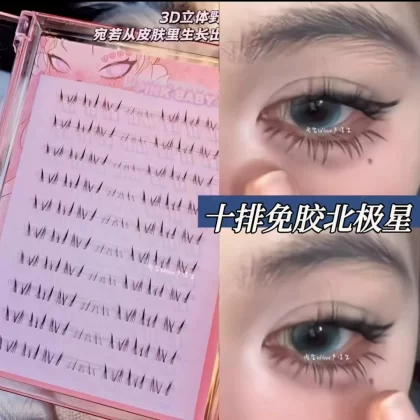 3D立体野
宛若从皮肤里生长出
PINK BABY
十排免胶北极星